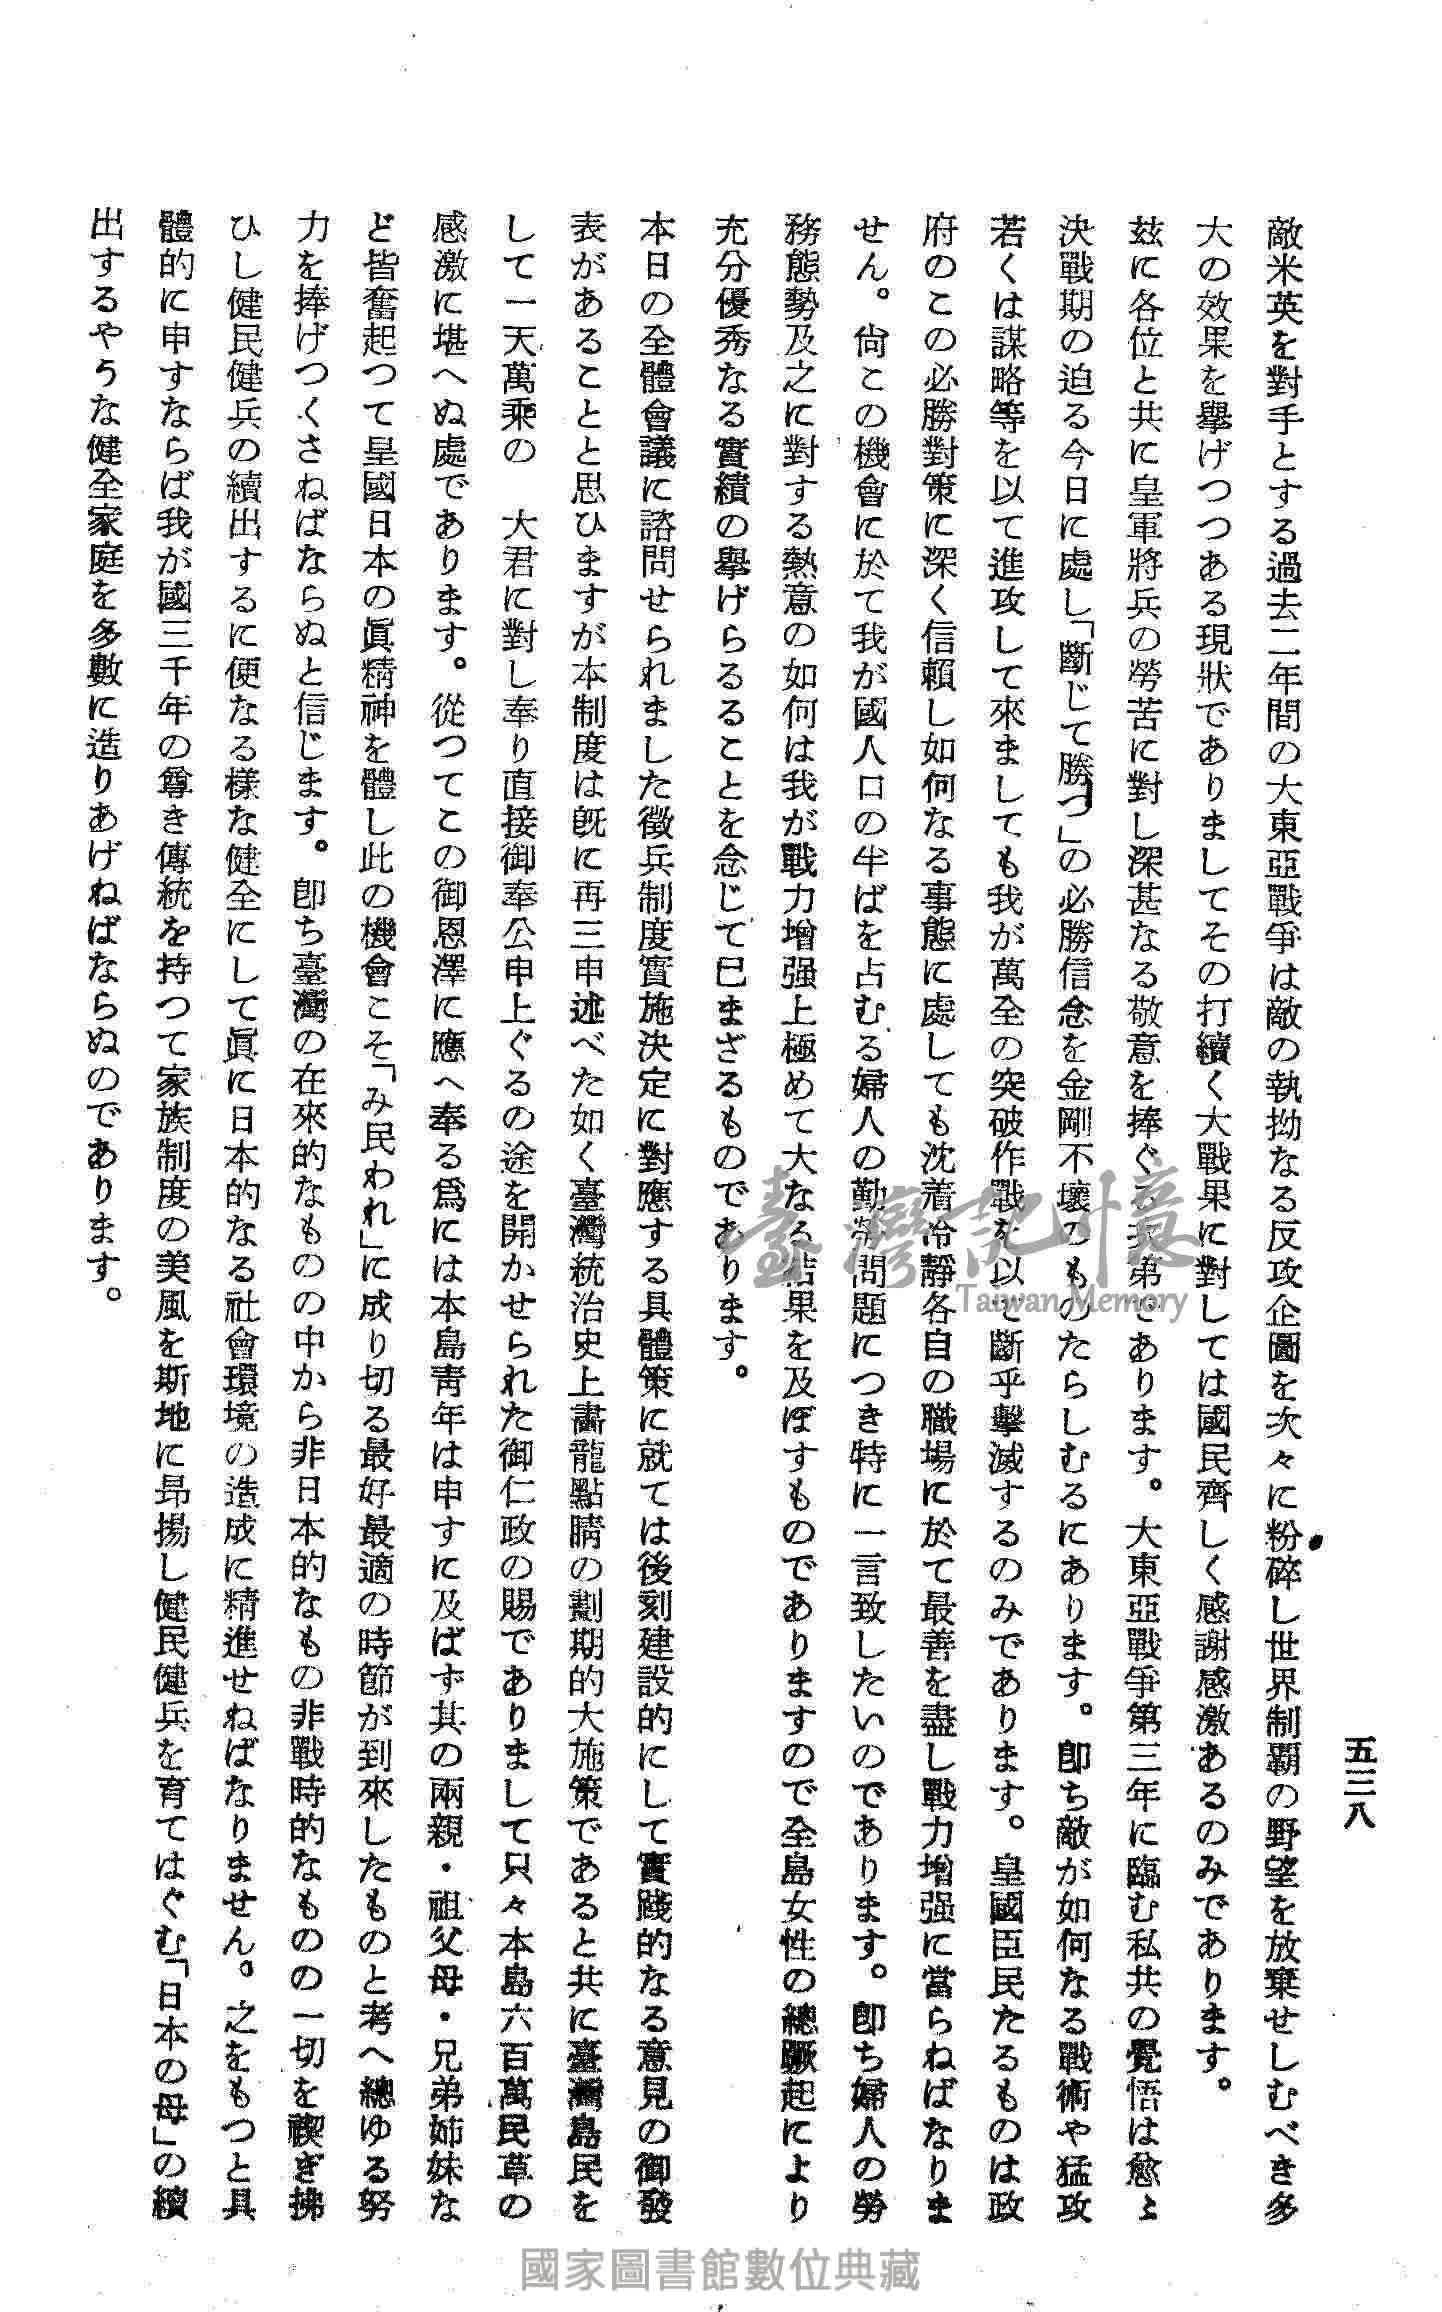 五三八
敵米英を對手とする過去二年間の大東亞戰爭は敵の執拗なる反攻企圖を次々に粉碎し世界制覇の野望を放棄せしむべき多
大の效果を擧げつつある現狀でありましてその打續く大戰果に對しては國民齊しく感謝感激あるのみであります。
玆に各位と共に皇軍將兵の勞苦に對し深甚なる敬意を捧ぐる次第であります。大東亞戰爭第三年に臨む私共の覺悟は愈〻
決戰期の迫る今日に處し「斷じて勝つ」の必勝信念を金剛不壞のものたらしむるにあります。卽ち敵が如何なる戰術や猛攻
若くは謀略等を以て進攻して來ましても我が萬全の突破作戰を以て斷乎擊滅するのみであります。皇國臣民たるものは政
府のこの必勝對策に深く信賴し如何なる事態に處しても沈着冷靜各自の職場に於て最善を盡し戰力增强に當らねばなりま
せん。尙この機會に於て我が國人口の半ばを占むる婦人の勤勞問題につき特に一言致したいのであります。卽ち婦人の勞
務態勢及之に對する熱意の如何は我が戰力增强上極めて大なる結果を及ぼすものでありますので全島女性の總蹶起により
充分優秀なる實績の擧げらるることを念じて已まざるものであります。
本日の全體會議に諮問せられました徵兵制度實施決定に對應する具體策に就ては後刻建設的にして實踐的なる意見の御發
表があることと思ひますが本制度は旣に再三申述べた如く臺灣統治史上畫龍點睛の劃期的大施策であると共に臺灣島民を
して一天萬乘の　大君に對し奉り直接御奉公申上ぐるの途を開かせられた御仁政の賜でありまして只々本島六百萬民草の
感激に堪へぬ處であります。從つてこの御恩澤に應へ奉る爲には本島靑年は申すに及ばず其の兩親・祖父母・兄弟姉妹な
ど皆奮起つて皇國日本の眞精神を體し此の機會こそ「み民われ」に成り切る最好最適の時節が到來したものと考へ總ゆる努
力を捧げつくさねばならぬと信じます。卽ち臺灣の在來的なものの中から非日本的なもの非戰時的なものの一切を禊ぎ拂
ひし健民健兵の續出するに便なる樣な健全にして眞に日本的なる社會環境の造成に精進せねばなりません。之をもつと具
體的に申すならば我が國三千年の尊き傳統を持つて家族制度の美風を斯地に昻揚し健民健兵を育てはぐむ「日本の母」の續
出するやうな健全家庭を多數に造りあげねばならぬのであります。
臺灣記憶
Taiwan Memory
國家圖書館數位典藏